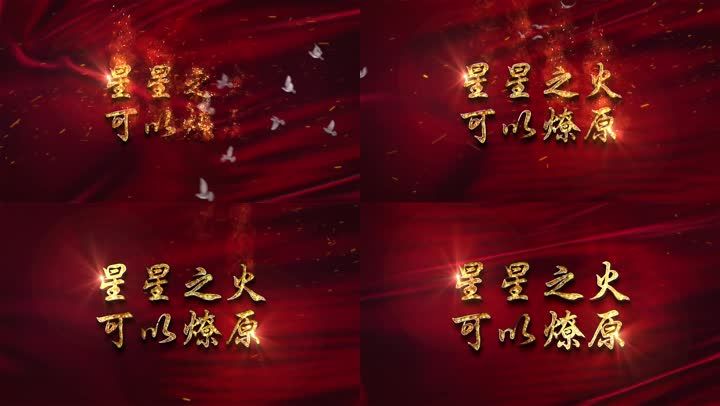 星星之
可以燎
星星之火
可以燎原
星星之火
可以燎原
星星之火
可以燎原